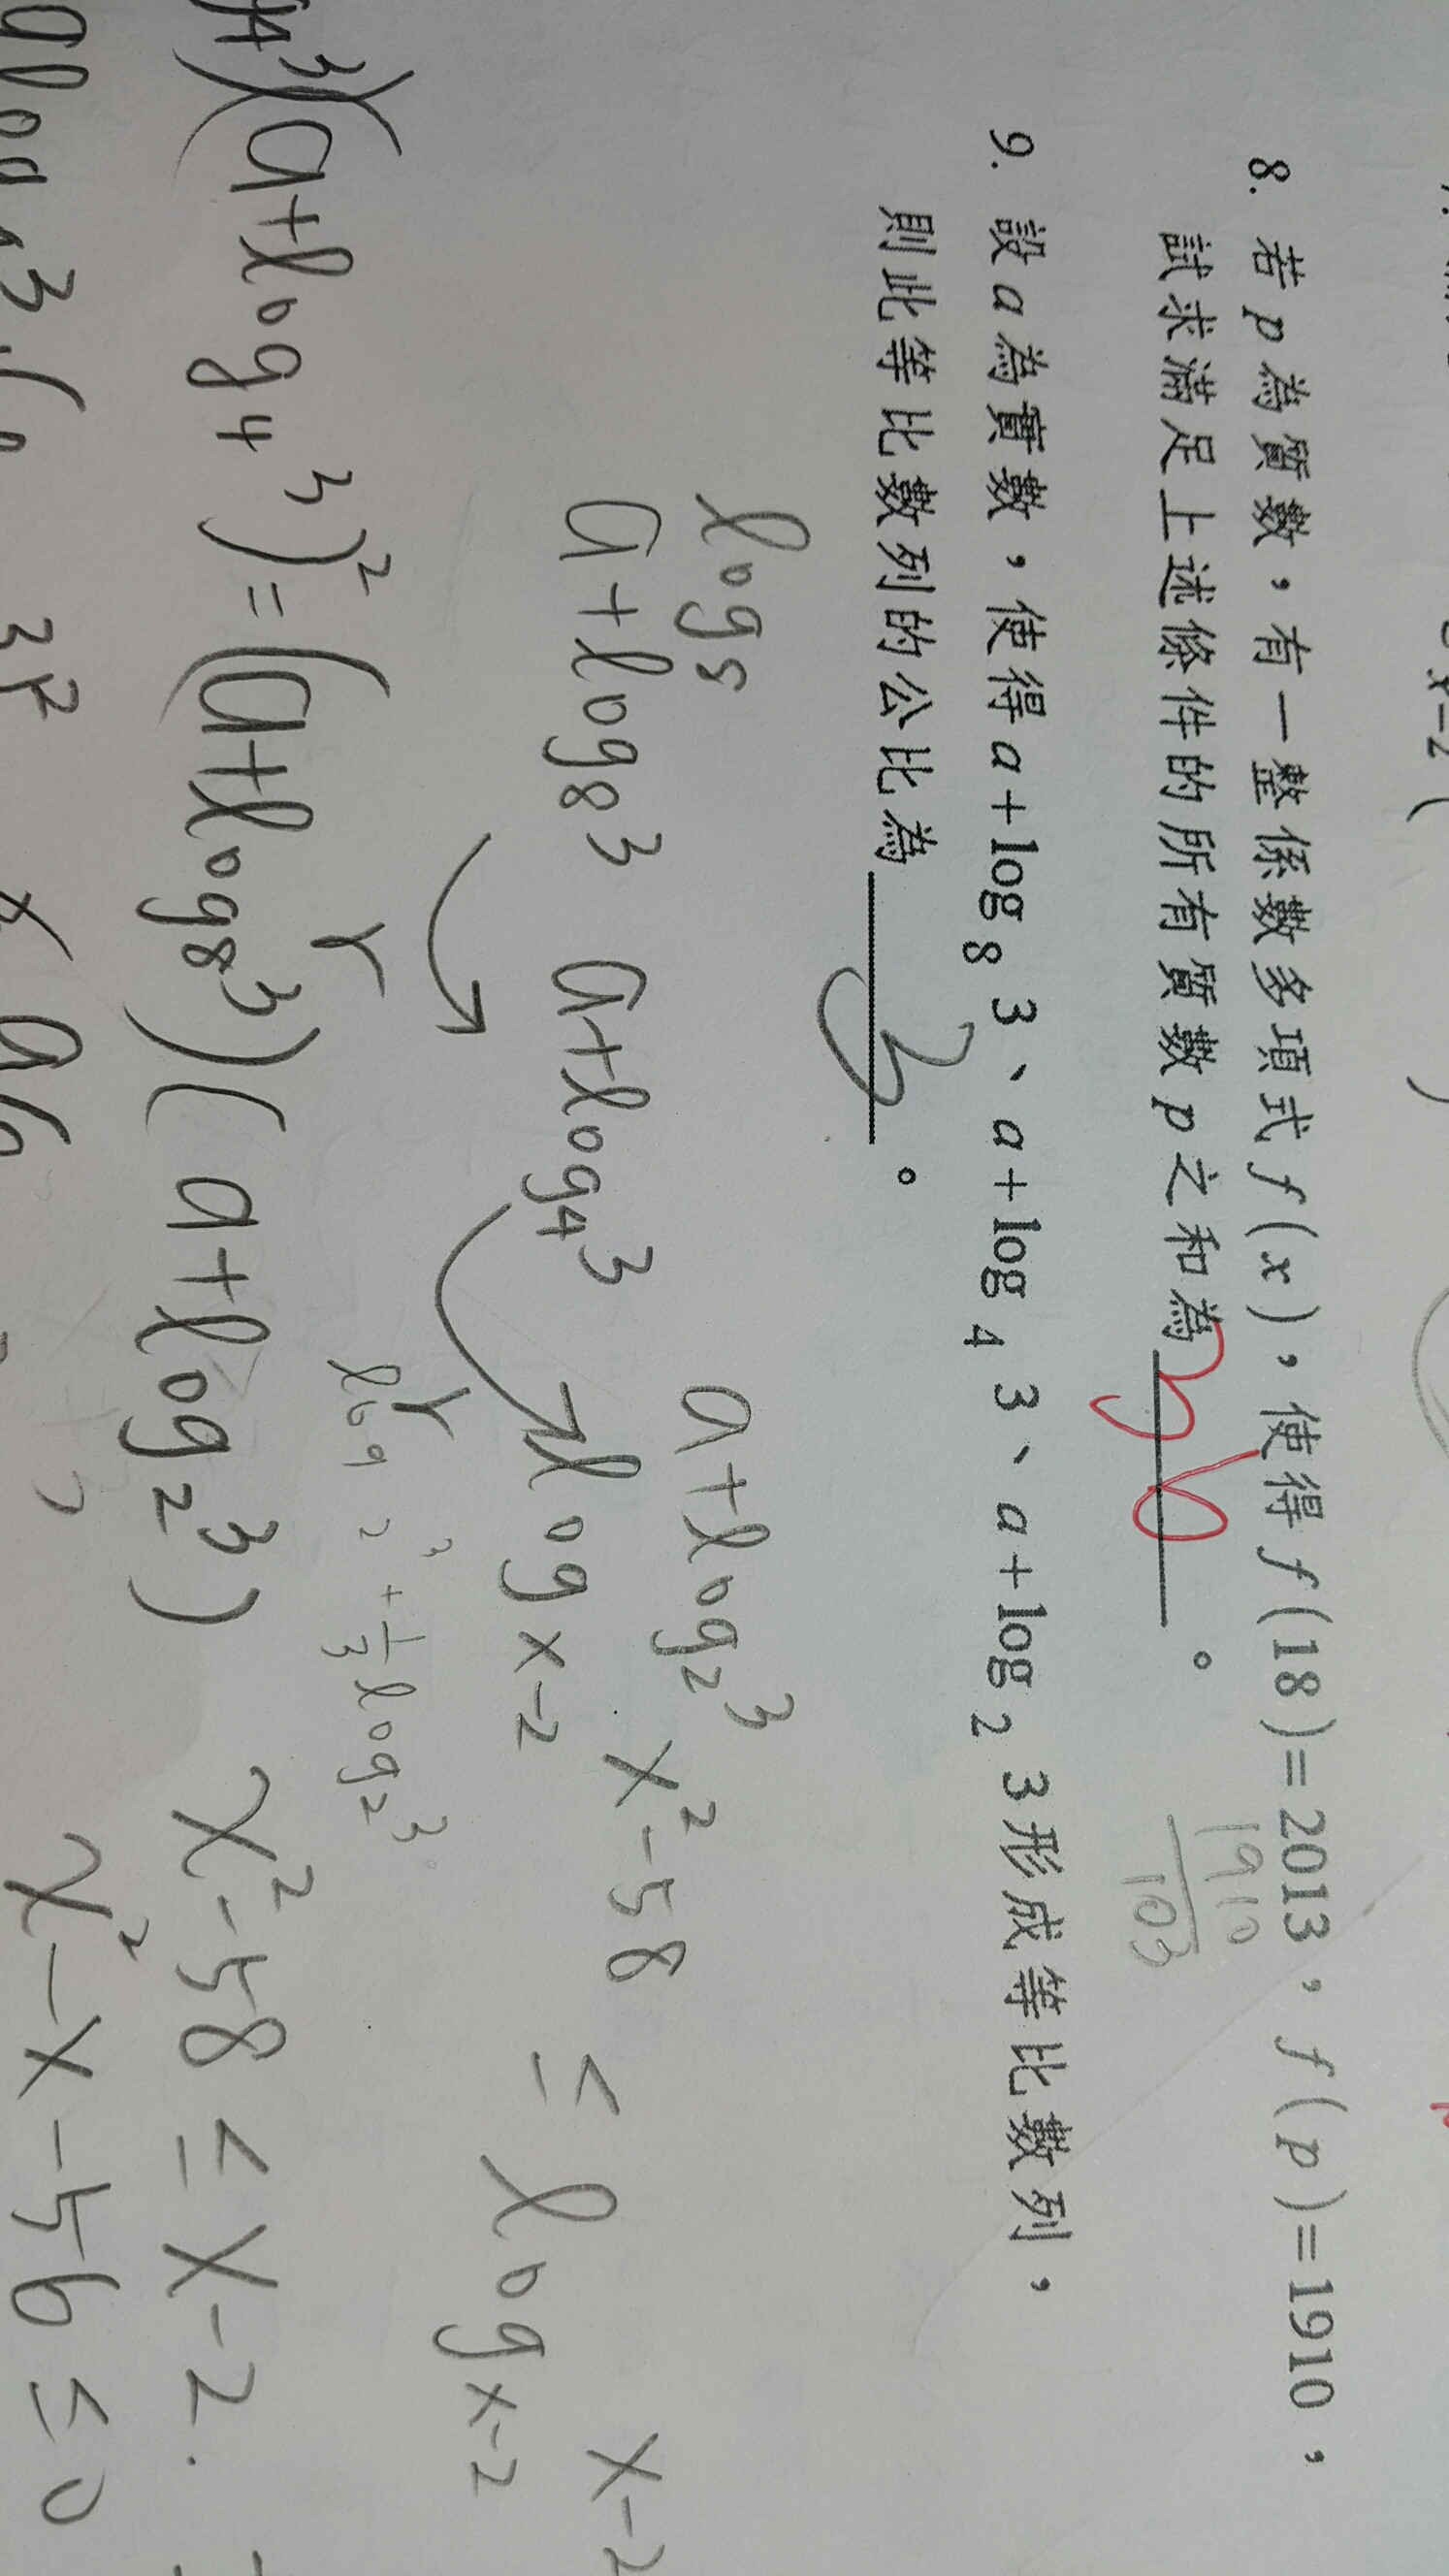 8. 若p為質數,有一整係數多項式f(x),使得f(18)=2013,f(p)=1910,
試求滿足上述條件的所有質數p之和為 36 。
1910
103
9. 設a為實數,使得a+log₈3、a+log₄3、a+log₂3形成等比數列,
則此等比數列的公比為 3 。
a+log₂3
a+log₈3 a+log₄3
r r
log x-2 x²-58 ≤ log x-2 x-2
log₂3 + 1/3 log₂3
(a+log₄3)² = (a+log₈3)(a+log₂3)
x²-58 ≤ x-2.
x²-x-56 ≤ 0